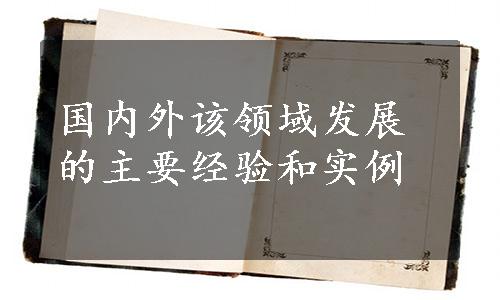 国内外该领域发展
的主要经验和实例